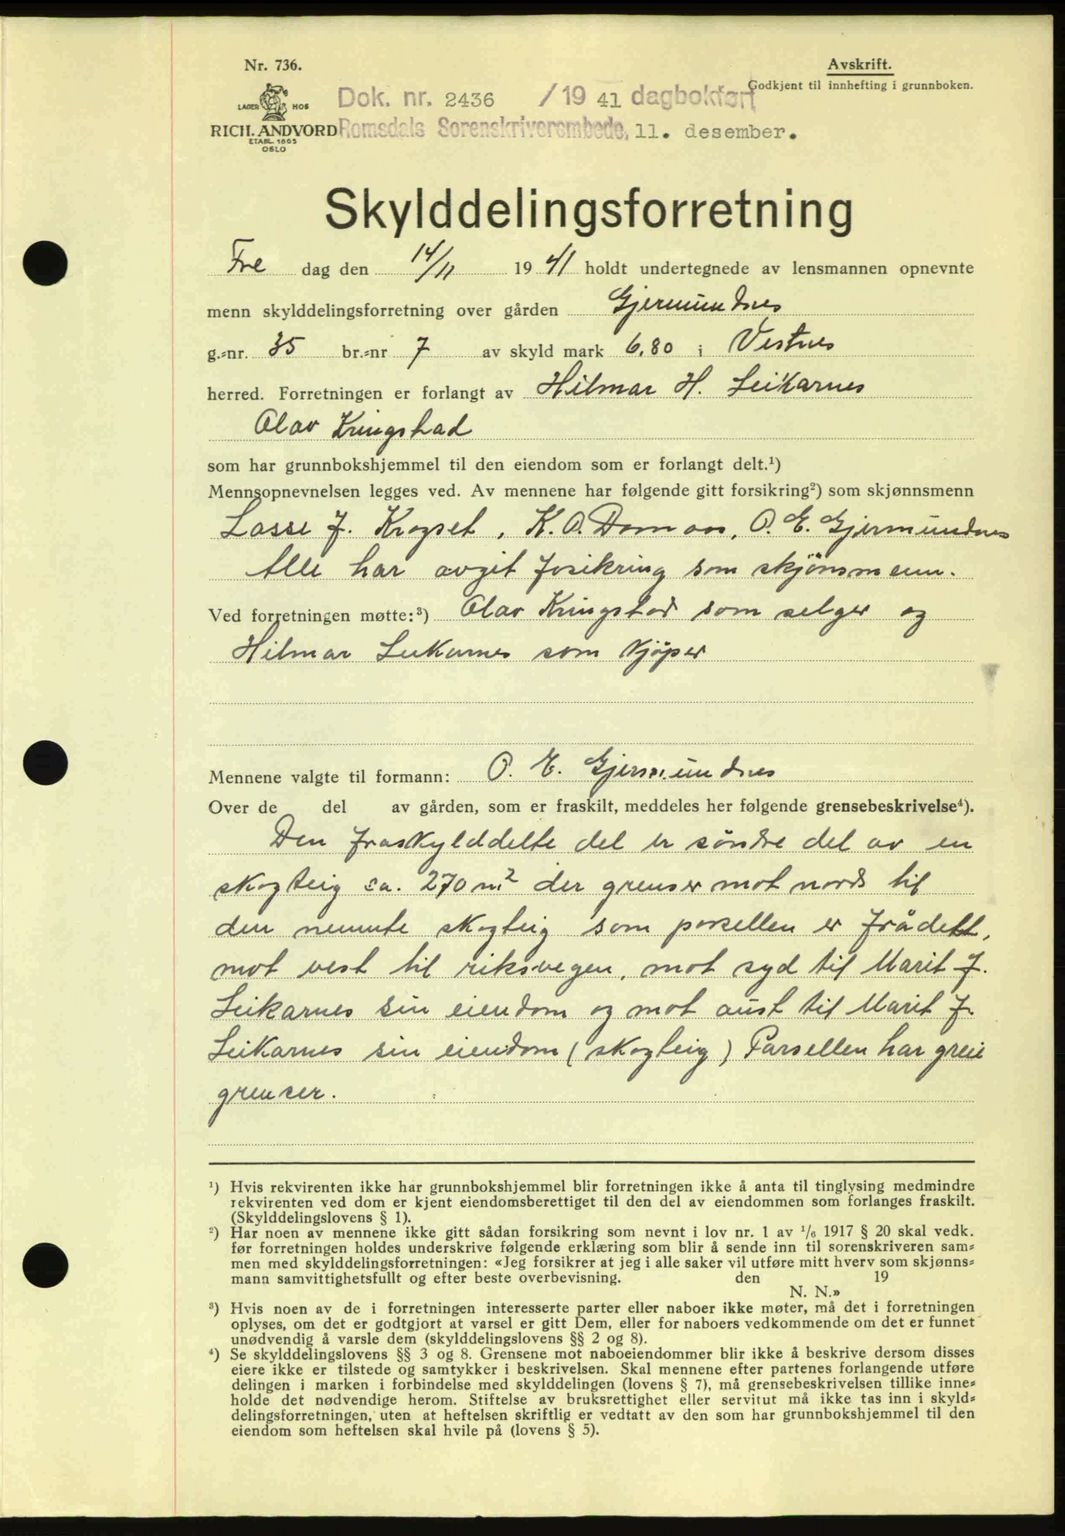 Nr. 736.
LAGER HOS
RICH. ANDVORD
ETABL. 1865
OSLO
Avskrift.
Godkjent til innhefting i grunnboken.
Dok. nr. 2436 /19 41 dagbokført
Romsdals Sorenskriverembede, 11. desember.
Skylddelingsforretning
Fre dag den 14/11 1941 holdt undertegnede av lensmannen opnevnte
menn skylddelingsforretning over gården Gjermundnes
g.=nr. 35 br.=nr 7 av skyld mark 6,80 i Vestnes
herred. Forretningen er forlangt av Hilmar H. Leikarnes
Olav Kringstad
som har grunnbokshjemmel til den eiendom som er forlangt delt.¹)
Mennsopnevnelsen legges ved. Av mennene har følgende gitt forsikring²) som skjønnsmenn
Lasse J. Krogset, K. O. Domaas, O. E. Gjermundnes
Alle har avgit fosikring som skjönsmenn.
Ved forretningen møtte:³) Olav Kringstad som selger og
Hilmar Leikarnes som kjöper
Mennene valgte til formann: O. E. Gjermundnes
Over de del av gården, som er fraskilt, meddeles her følgende grensebeskrivelse⁴).
Den fraskylddelte del er söndre del av en
skogteig ca. 270 m² der grenser mot nord til
den nemnte skogteig som parsellen er frådelt,
mot vest til riksvegen, mot syd til Marit J.
Leikarnes sin eiendom og mot aust til Marit J.
Leikarnes sin eiendom (skogteig) Parsellen har greie
grenser.
¹) Hvis rekvirenten ikke har grunnbokshjemmel blir forretningen ikke å anta til tinglysing medmindre
rekvirenten ved dom er kjent eiendomsberettiget til den del av eiendommen som forlanges fraskilt.
(Skylddelingslovens § 1).
²) Har noen av mennene ikke gitt sådan forsikring som nevnt i lov nr. 1 av 1/6 1917 § 20 skal vedk.
før forretningen holdes underskrive følgende erklæring som blir å sende inn til sorenskriveren sam=
men med skylddelingsforretningen: «Jeg forsikrer at jeg i alle saker vil utføre mitt hverv som skjønns=
mann samvittighetsfullt og efter beste overbevisning. den 19
N. N.»
³) Hvis noen av de i forretningen interesserte parter eller naboer ikke møter, må det i forretningen
oplyses, om det er godtgjort at varsel er gitt Dem, eller for naboers vedkommende om det er funnet
unødvendig å varsle dem (skylddelingslovens §§ 2 og 8).
⁴) Se skylddelingslovens §§ 3 og 8. Grensene mot naboeiendommer blir ikke å beskrive dersom disses
eiere ikke er tilstede og samtykker i beskrivelsen. Skal mennene efter partenes forlangende utføre
delingen i marken i forbindelse med skylddelingen (lovens § 7), må grensebeskrivelsen tillike inne=
holde det nødvendige herom. Stiftelse av bruksrettighet eller servitut må ikke tas inn i skyld=
delingsforretningen, uten at heftelsen skriftlig er vedtatt av den som har grunnbokshjemmel til den
eiendom som heftelsen skal hvile på (lovens § 5).